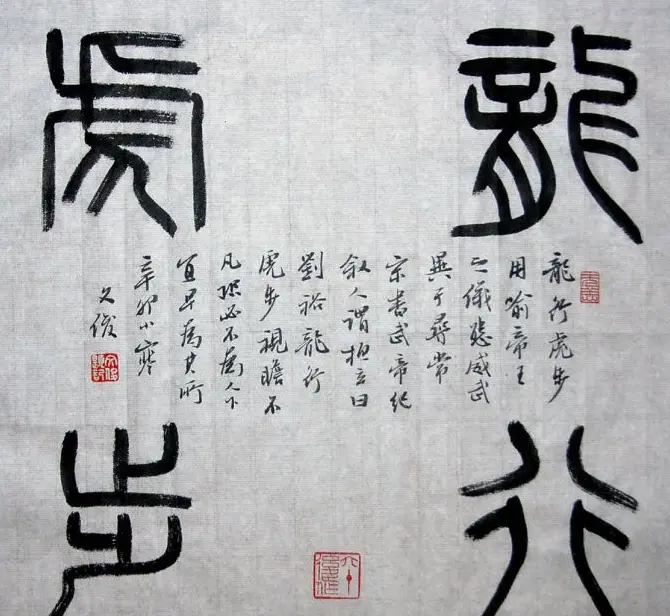 龍行
虎步
龍行虎步
用喻帝王
之儀態威武
異于尋常
宋書武帝紀
叙人謂桓玄曰
劉裕龍行
虎步視瞻不
凡恐必不為人下
宜早為其所
辛卯小寒
文俊